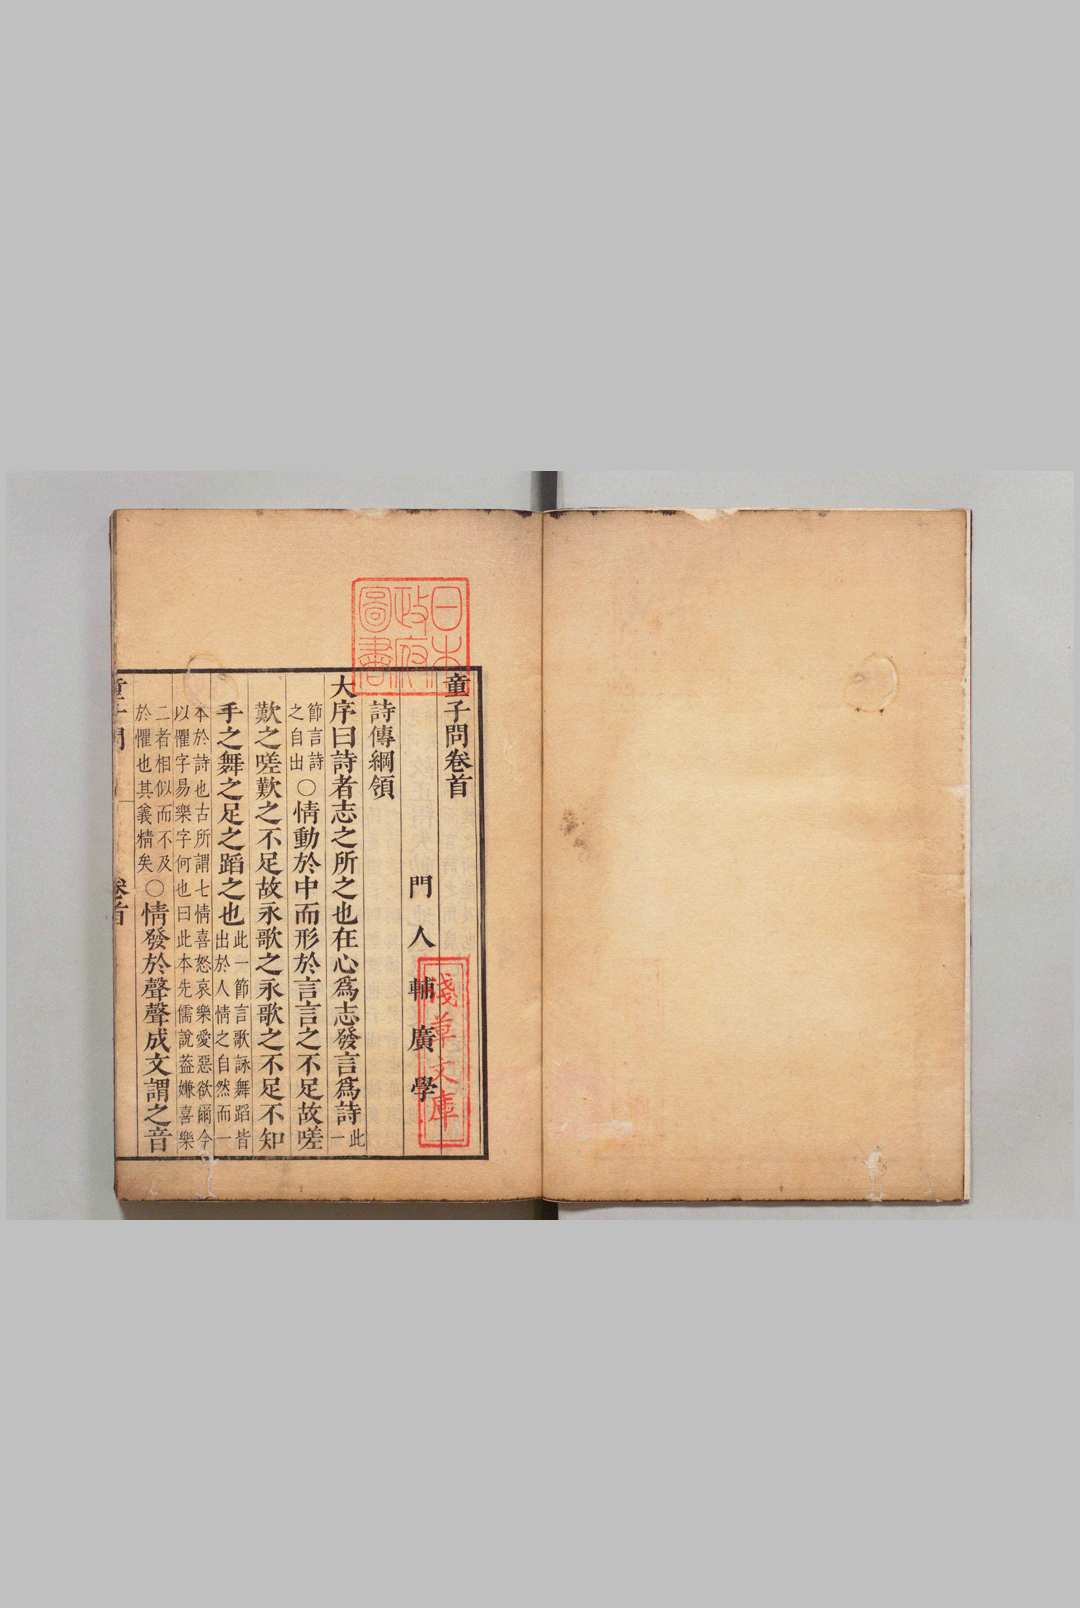 日本
政府
圖書
童子問卷首
門人輔廣學
淺草文庫
詩傳綱領
大序曰詩者志之所之也在心爲志發言爲詩此一
節言詩之自出○情動於中而形於言言之不足故嗟
歎之嗟歎之不足故永歌之永歌之不足不知
手之舞之足之蹈之也此一節言歌詠舞蹈皆出於人情之自然而一
本於詩也古所謂七情喜怒哀樂愛惡欲爾今
以懼字易樂字何也曰此本先儒說葢嫌喜樂
二者相似而不及於懼也其義精矣○情發於聲聲成文謂之音
童子問 卷首